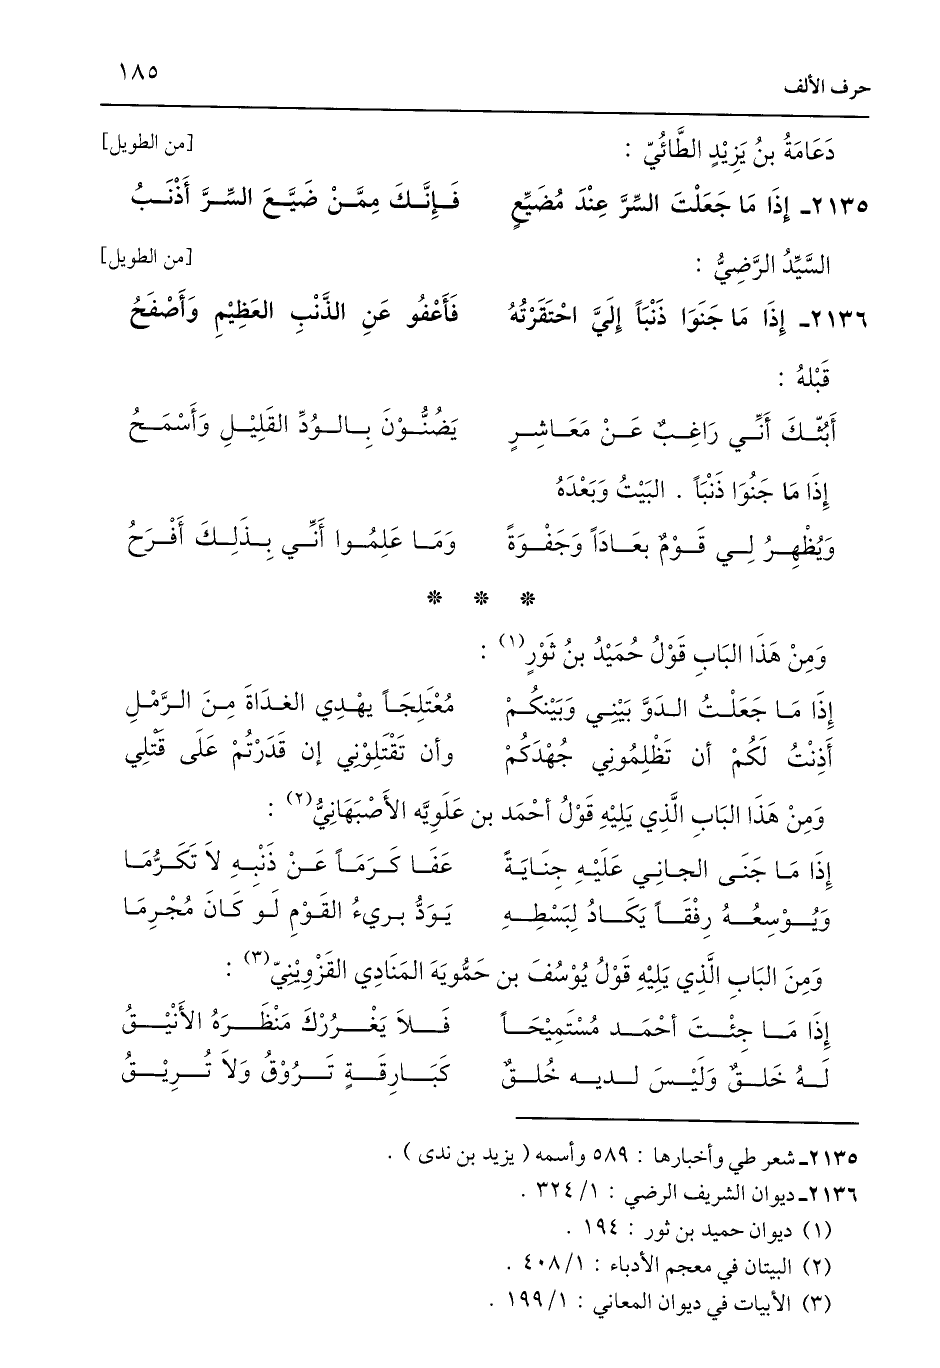 حرف الألف ١٨٥
دَعَامَةُ بنُ يَزِيْدٍ الطَّائُيّ : [من الطويل]
٢١٣٥ـ إِذَا مَا جَعَلْتَ السِّرَّ عِنْدَ مُضَيِّعٍ فَإِنَّكَ مِمَّنْ ضَيَّعَ السِّرَّ أَذْنَبُ
السَّيِّدُ الرَّضِيُّ : [من الطويل]
٢١٣٦ـ إِذَا مَا جَنَوا ذَنْبَاً إِلَيَّ احْتَقَرْتُهُ فَأَعْفُو عَنِ الذَّنْبِ العَظِيْمِ وَأَصْفَحُ
قَبْلهُ :
أَبُثّكَ أَنِّي رَاغِبٌ عَنْ مَعَاشِرٍ يَضُنُّوْنَ بِالوُدِّ القَلِيْلِ وَأَسْمَحُ
إِذَا مَا جَنُوَا ذَنْبَاً . البَيْتُ وَبَعْدَهُ
وَيُظْهِرُ لِي قَوْمٌ بعَادَاً وَجَفْوَةً وَمَا عَلِمُوا أَنِّي بِذَلِكَ أَفْرَحُ
* * *
وَمِنْ هَذَا البَابِ قَوْلُ حُمَيْدُ بنُ ثَوْرٍ(١) :
إِذَا مَا جَعَلْتُ الدوَّ بَيْنِي وَبَيْنكُمْ مُعْتَلِجَاً يهْدِي الغدَاةَ مِنَ الرَّمْلِ
أَذِنْتُ لَكُمْ أن تَظْلِمُونِي جُهْدَكُمْ وأن تَقْتَلِوْنِي إن قَدَرْتُمْ عَلَى قَتْلِي
وَمِنْ هَذَا البَابِ الَّذِي يَلِيْهِ قَوْلُ أحْمَد بن عَلَويَّه الأَصْبَهَانِيُّ(٢) :
إِذَا مَا جَنَى الجانِي عَلَيْهِ جِنَايَةً عَفَا كَرَمَاً عَنْ ذَنْبهِ لاَ تكَرُّمَا
وَيُوْسعُهُ رِفْقَاً يَكَادُ لِبَسْطِهِ يَوَدُّ بريءُ القَوْمِ لَو كَانَ مُجْرِمَا
وَمِنَ البَابِ الَّذِي يَلِيْهِ قَوْلُ يُوْسُفَ بن حَمُّويَهَ المَنَادِي القَزْوِيْنِيّ(٣) :
إِذَا مَا جِئْتَ أحْمَد مُسْتَمِيْحَاً فَلاَ يَغْرُرْكَ مَنْظَرَهُ الأَنْيْقُ
لَهُ خَلقٌ وَلَيْسَ لديه خُلقٌ كَبَارِقَةٍ تَرُوْقُ وَلاَ تُرِيْقُ
٢١٣٥ـ شعر طي وأخبارها : ٥٨٩ وأسمه ( يزيد بن ندى ) .
٢١٣٦ـ ديوان الشريف الرضي : ٣٢٤/١ .
(١) ديوان حميد بن ثور : ١٩٤ .
(٢) البيتان في معجم الأدباء : ٤٠٨/١ .
(٣) الأبيات في ديوان المعاني : ١٩٩/١ .